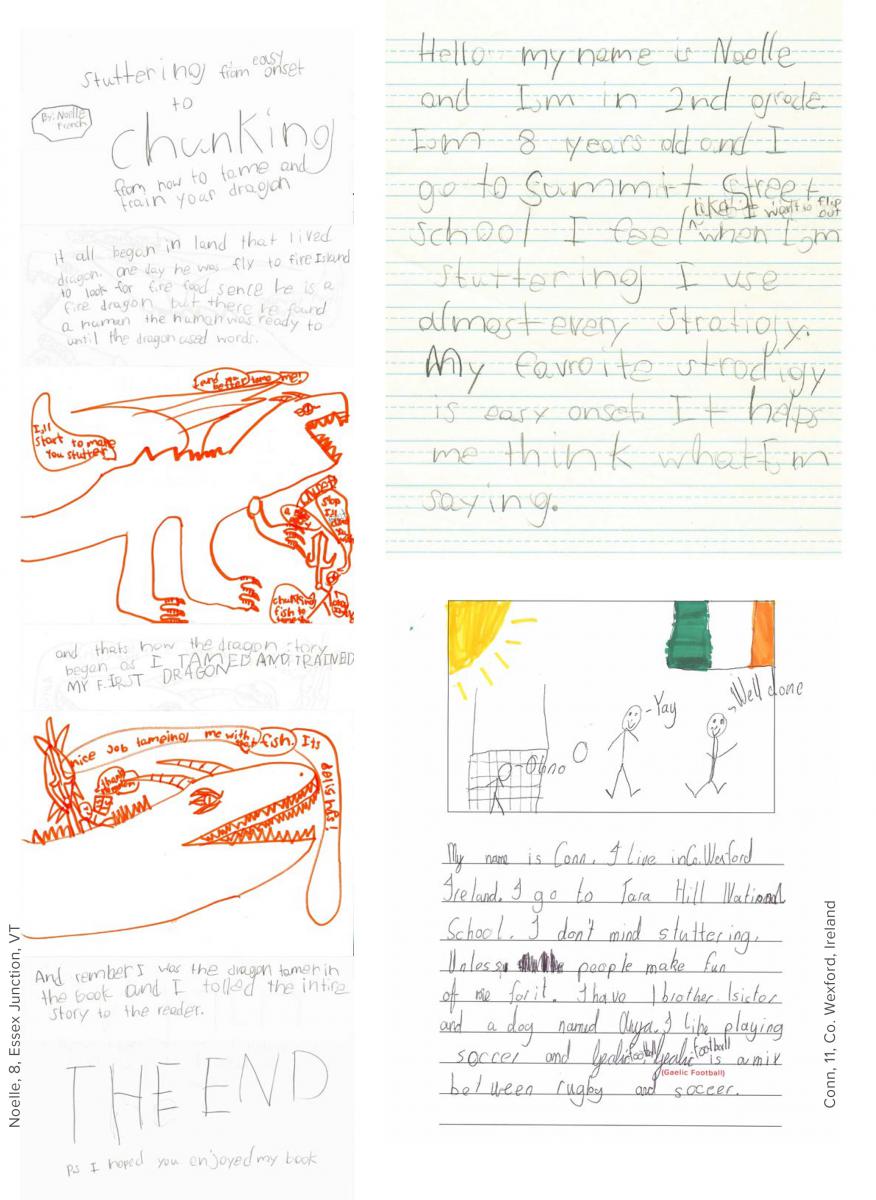 stuttering from easy onset
to
Chunking
By: Noelle
French
from how to tame and
train your dragon
it all began in land that lived
dragon. one day he was fly to fire Island
to look for fire food sence he is a
fire dragon but there he found
a human the human was ready to
until the dragon used words.
better me!
I,ll
start to make
you stutter
stop
I,ll
chunking
fish to
and thats how the dragon story
began as I TAMED AND TRAINED
MY FIRST DRAGON
nice job tampeing me with that fish. Its
delishas!
thank
And rember I was the dragon tamer in
the book and I tolled the intire
story to the reader.
THE END
Ps I hoped you enjoyed my book
Noelle, 8, Essex Junction, VT
Hello my name is Noelle
and I,m in 2nd grade.
I,m 8 years old and I
go to Summit Street
like I want to flip
out
school I feel ^ when I,m
stuttering I use
almost every stratiogy.
My favroite strodigy
is easy onset. It helps
me think what I,m
saying.
-Yay
-Well done
-Ohno
My name is Conn. I live in Co. Wexford
Ireland. I go to Tara Hill National
School. I don't mind stuttering.
Unless people make fun
of me for it. I have 1 brother 1 sister
and a dog named I like playing
football football
soccer and Gealic Gealic is a mix
(Gaelic Football)
between rugby and soccer.
Conn, 11, Co. Wexford, Ireland